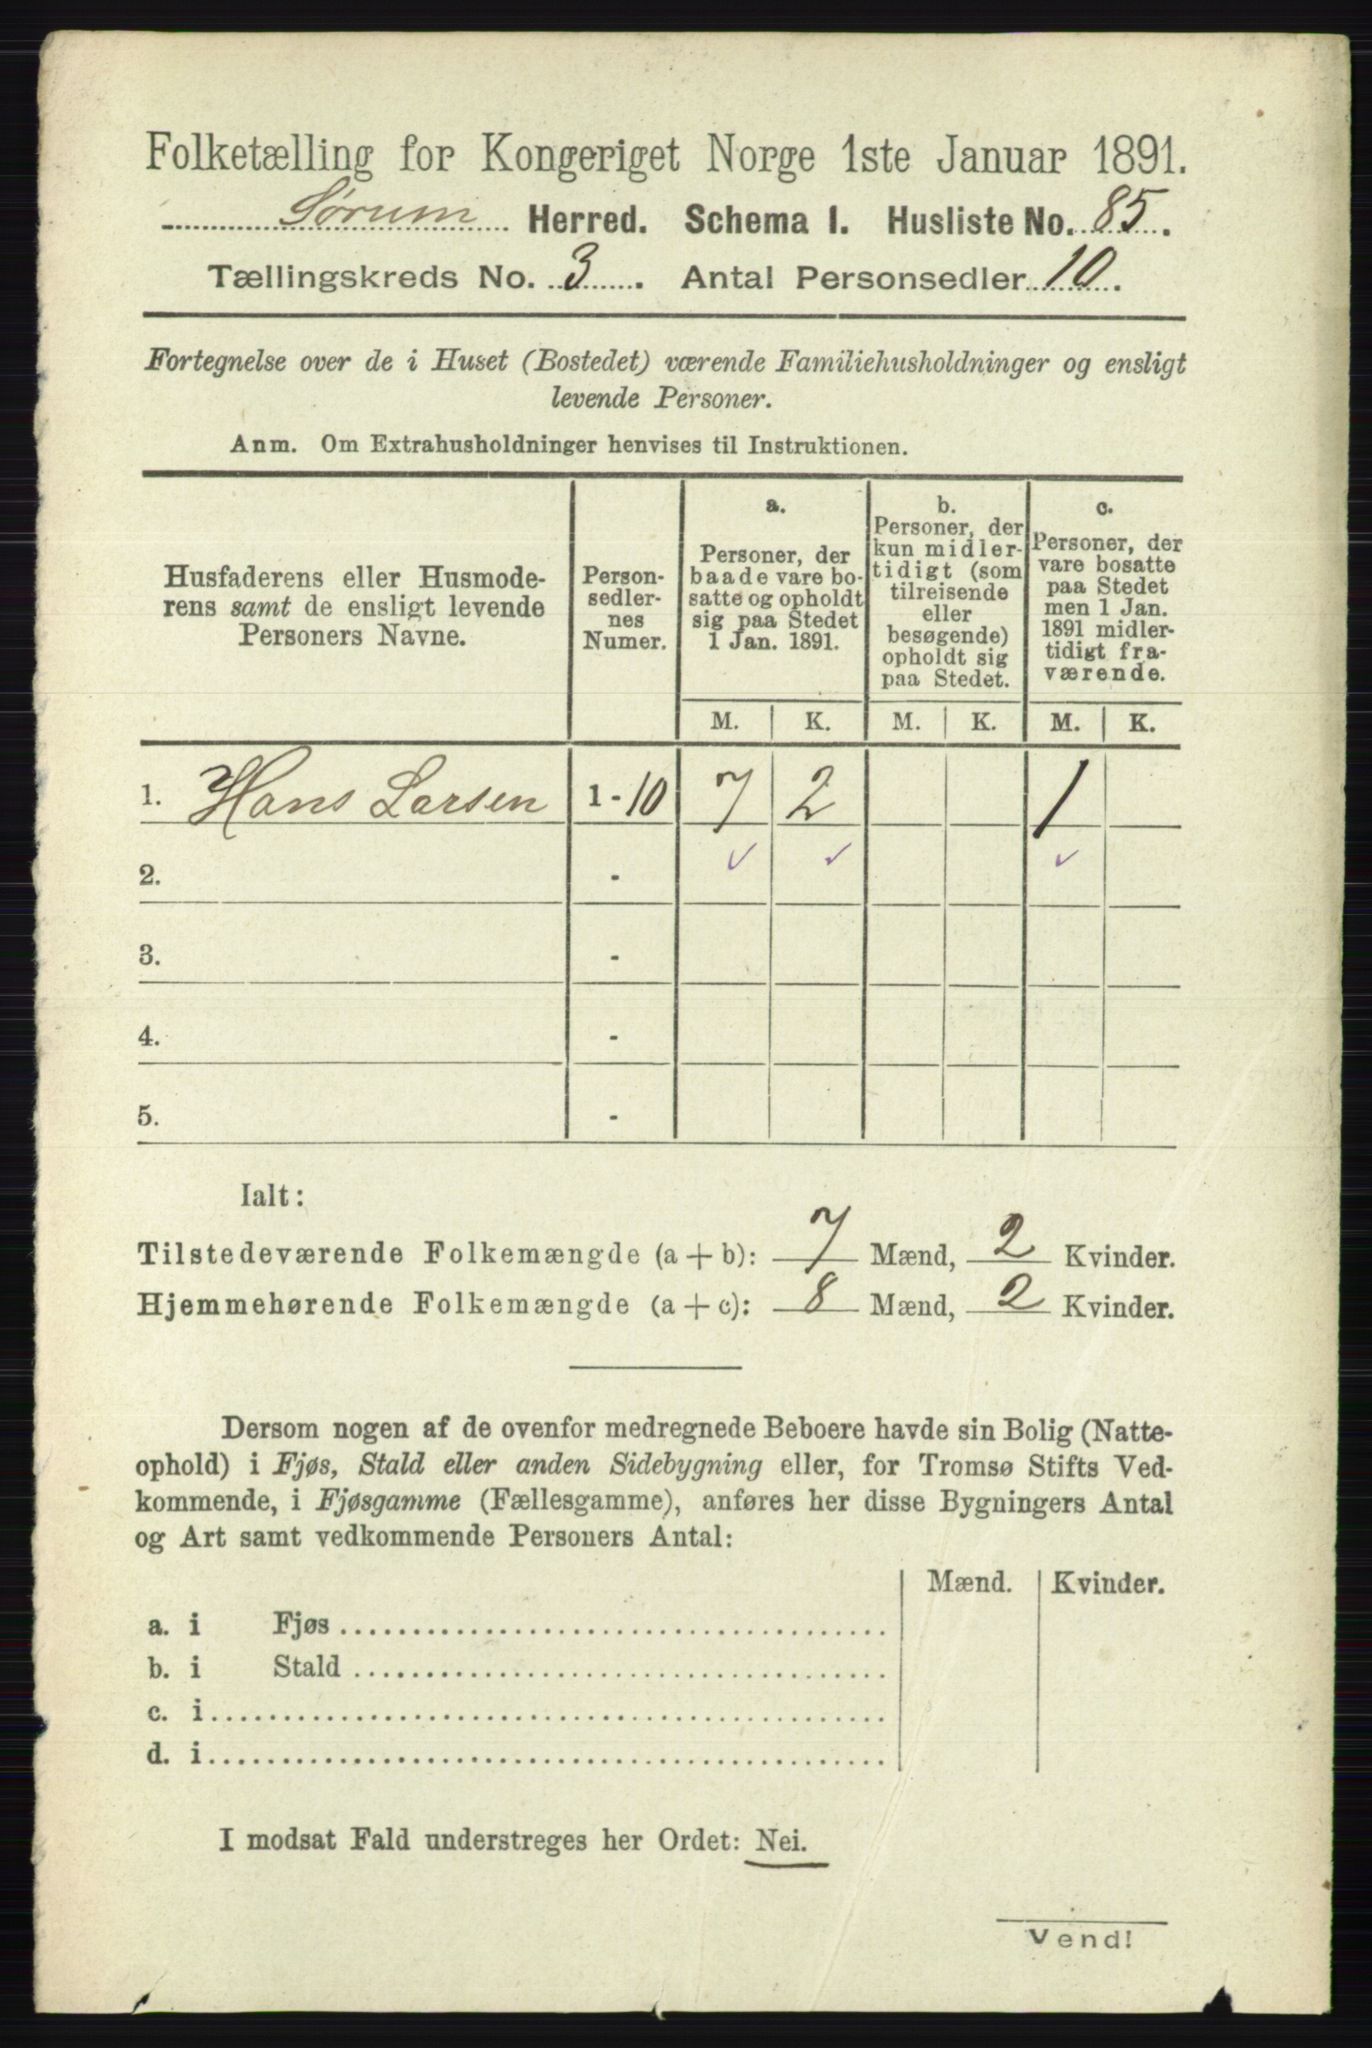 Folketælling for Kongeriget Norge 1ste Januar 1891.
Sørum Herred. Schema I. Husliste No. 85.
Tællingskreds No. 3. Antal Personsedler 10.
Fortegnelse over de i Huset (Bostedet) værende Familiehusholdninger og ensligt
levende Personer.
Anm. Om Extrahusholdninger henvises til Instruktionen.
Husfaderens eller Husmode-
rens samt de ensligt levende
Personers Navne.
Person-
sedler-
nes
Numer.
a.
Personer, der
baade vare bo-
satte og opholdt
sig paa Stedet
1 Jan. 1891.
b.
Personer, der
kun midler-
tidigt (som
tilreisende
eller
besøgende)
opholdt sig
paa Stedet.
c.
Personer, der
vare bosatte
paa Stedet
men 1 Jan.
1891 midler-
tidigt fra-
værende.
M. K. M. K. M. K.
1. Hans Larsen 1-10 7 2 1
✓ ✓ ✓
2. -
3. -
4. -
5. -
Ialt:
Tilstedeværende Folkemængde (a + b): 7 Mænd, 2 Kvinder.
Hjemmehørende Folkemængde (a + c): 8 Mænd, 2 Kvinder.
Dersom nogen af de ovenfor medregnede Beboere havde sin Bolig (Natte-
ophold) i Fjøs, Stald eller anden Sidebygning eller, for Tromsø Stifts Ved-
kommende, i Fjøsgamme (Fællesgamme), anføres her disse Bygningers Antal
og Art samt vedkommende Personers Antal:
Mænd. Kvinder.
a. i Fjøs
b. i Stald
c. i
d. i
I modsat Fald understreges her Ordet: Nei.
Vend!